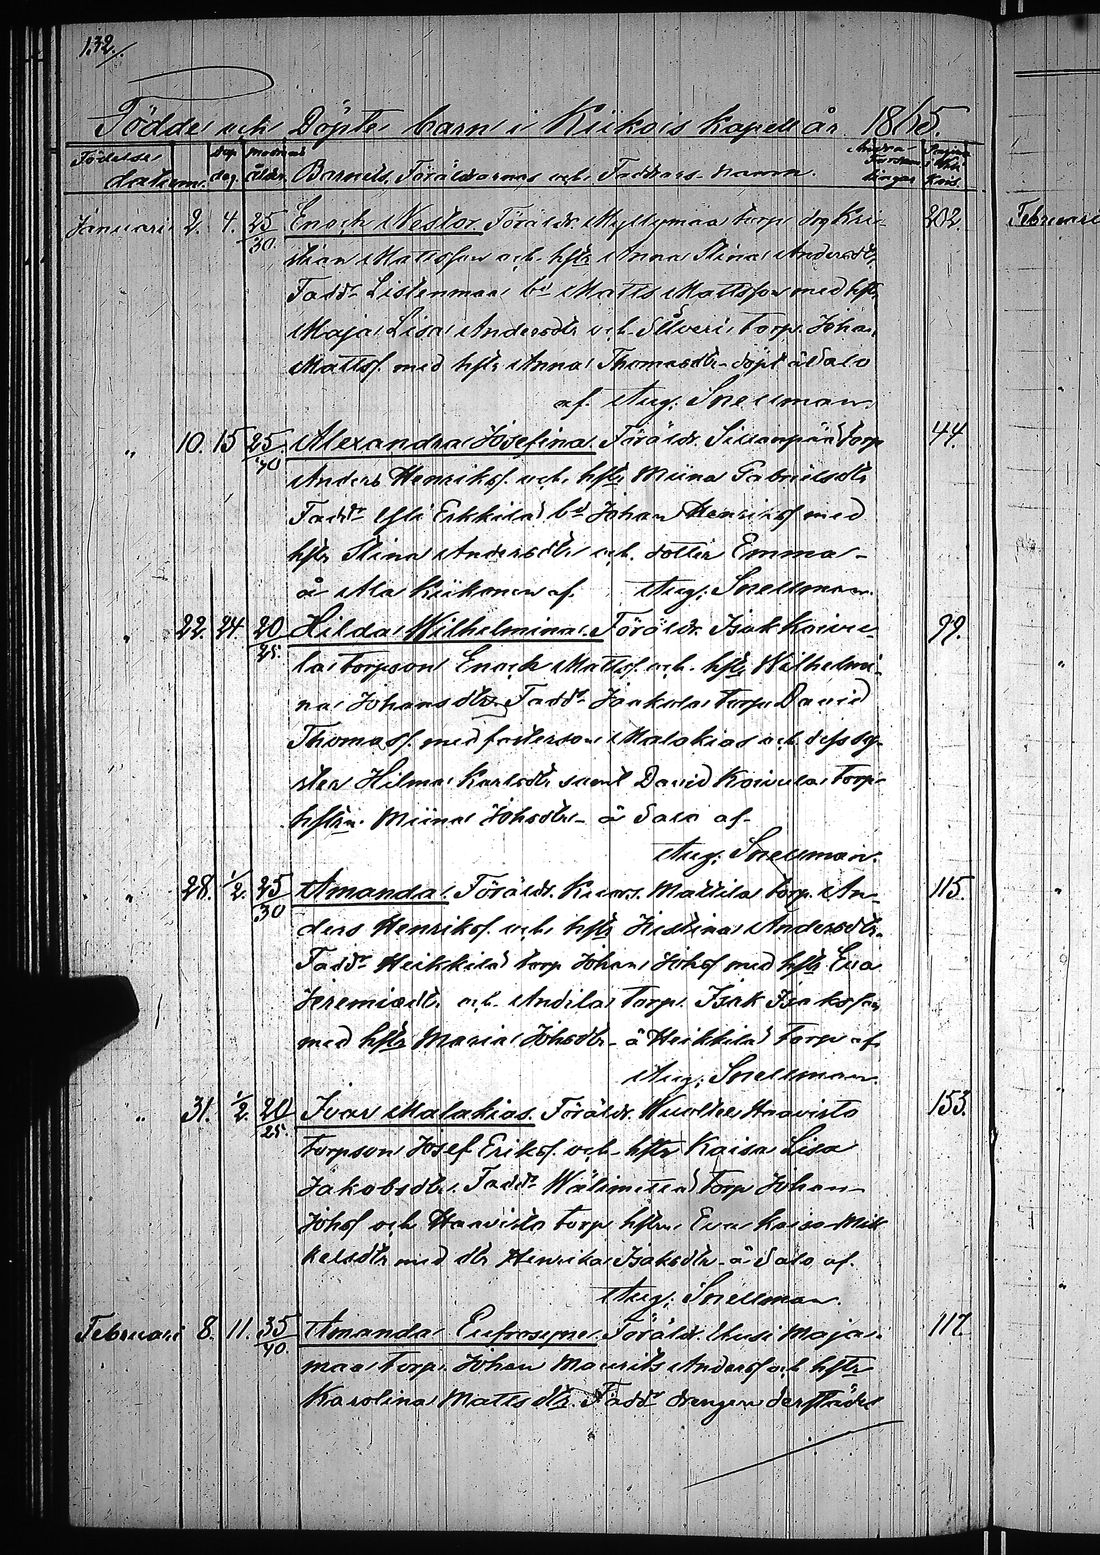 132.
Födde och Döpte barn i Kiikois kapell år 1865.
Födelse datum. Dop dag. Modrens ålder. Barnets, Föräldrarnas och Faddrars namn. Pagina
Januari 2. 4. 25/30. Enoch Nestor. Föräldr. Myllymaa torp. dog Kri- 202.
stian Mattsson och hstr Anna Stina Andersdtr,
Fadd. Listenmaa bd Matts Mattsson med hstr
Maja Lisa Andersdtr och torp. Johan
Mattss. med hstr Anna Thomasdtr - döpt å Salo
af Aug: Snellman.
" 10. 15 25/40 Alexandra Josefina. Föräldr. Sillanpää torp 44.
Anders Henrikss. och hstr Miina Gabrielsdtr
Fadd. Yli Erkkilä bd Johan Henrikss med
hstr Stina Andersdtr och dotter Emma -
å Ala Kiikonen af. Aug: Snellman.
" 22. 24. 20/25. Hilda Wilhelmina. Föräldr. Isak Koivu- 99.
la torpson Enoch Mattss. och hstr Wilhelmi-
na Johansdtr. Fadd. Jaakola torp. David
Thomass. med fosterson Malakias och dess sy-
ster Hilma Karlsdtr samt David Koivula torp.
hstrn. Miina Johsdtr - å Salo af -
Aug: Snellman.
" 28. 1/2. 25/30 Amanda. Föräldr. Mattila torp. An- 115.
ders Henrikss. och hstr Kristina Andersdtr.
Fadd. Heikkilä torp Johan Johss med hstr Eva
Jeremiædtr och Andila torp. Isak Isaksson
med hstr Maria Johsdtr - å Heikkilä torp af
Aug: Snellman.
" 31. 1/2. 20/25. Ivar Malakias. Föräldr. Haavisto 153.
torpson Josef Erikss. och hstr Kaisa Lisa
Jakobsdtr. Fadd. torp Johan
Johss och Haavisto torp hstrn. Eva Kaisa Mik
kelsdtr med dtr Henrika Isaksdtr - å Salo af.
Aug: Snellman.
Februari 8. 11. 35/40. Amanda Eufrosyne. Föräldr. Uusi Maja- 117.
maa torp. Johan Maurits Anderss och hstr
Karolina Mattsdtr. Fadd. drengen derstädes
Februari